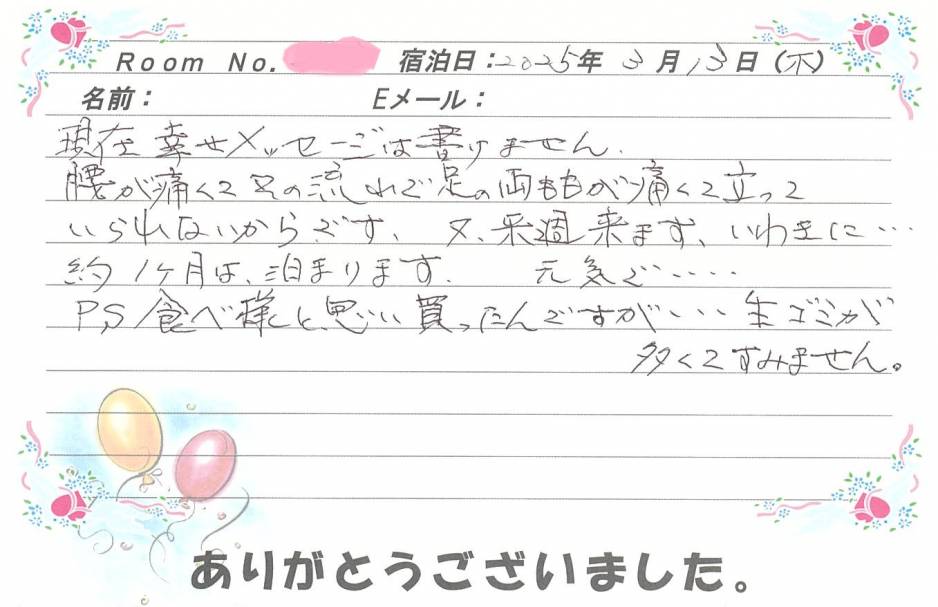 Room No. 宿泊日：2025年 3月13日（木）
名前： Eメール：
現在幸せメッセージは書けません.
腰が痛くて足の流れで足の両ももが痛くて立って
いられないからです、又、来週来ます、いわきに…
約1ヶ月は、泊まります. 元気で……
P,S/食べ様と思い買ったんですが…生ゴミが
多くてすみません。
ありがとうございました。